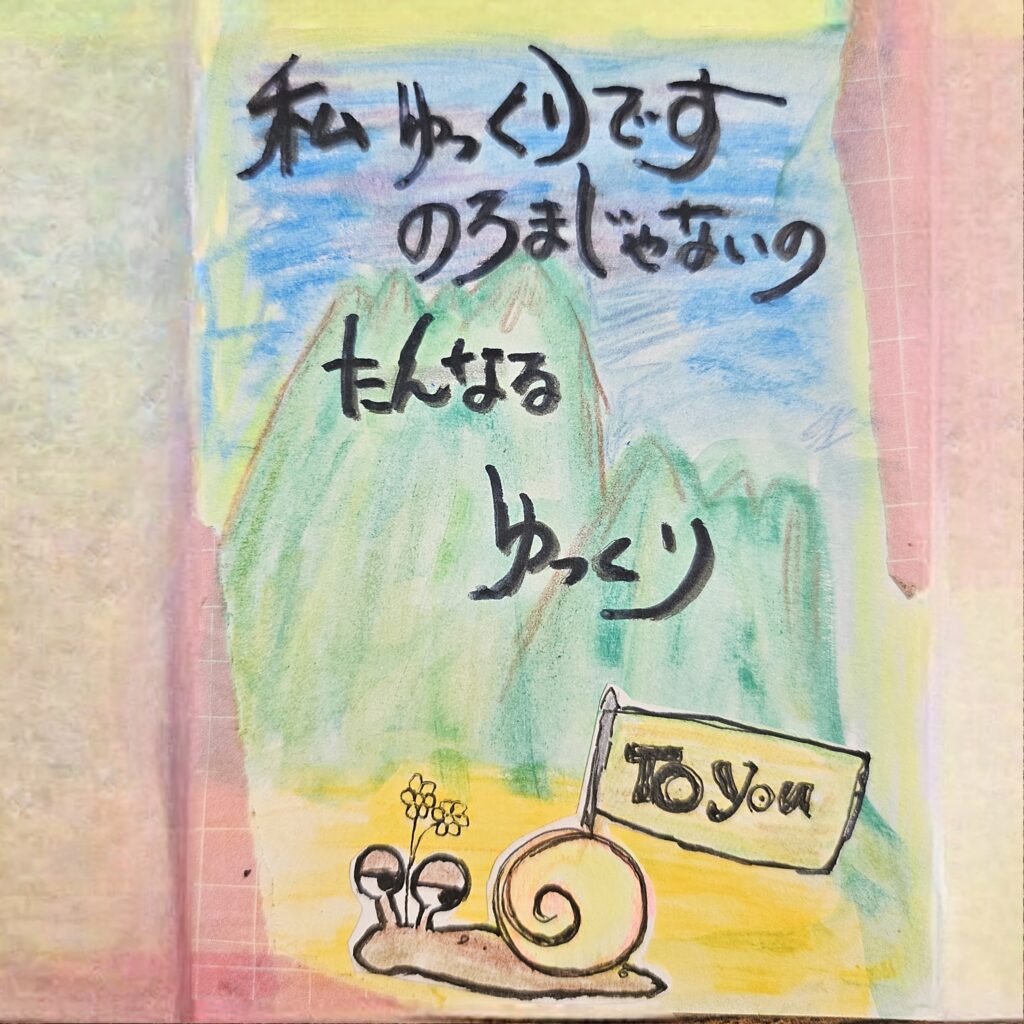 私 ゆっくりです
のろまじゃないの
たんなる
ゆっくり
To You